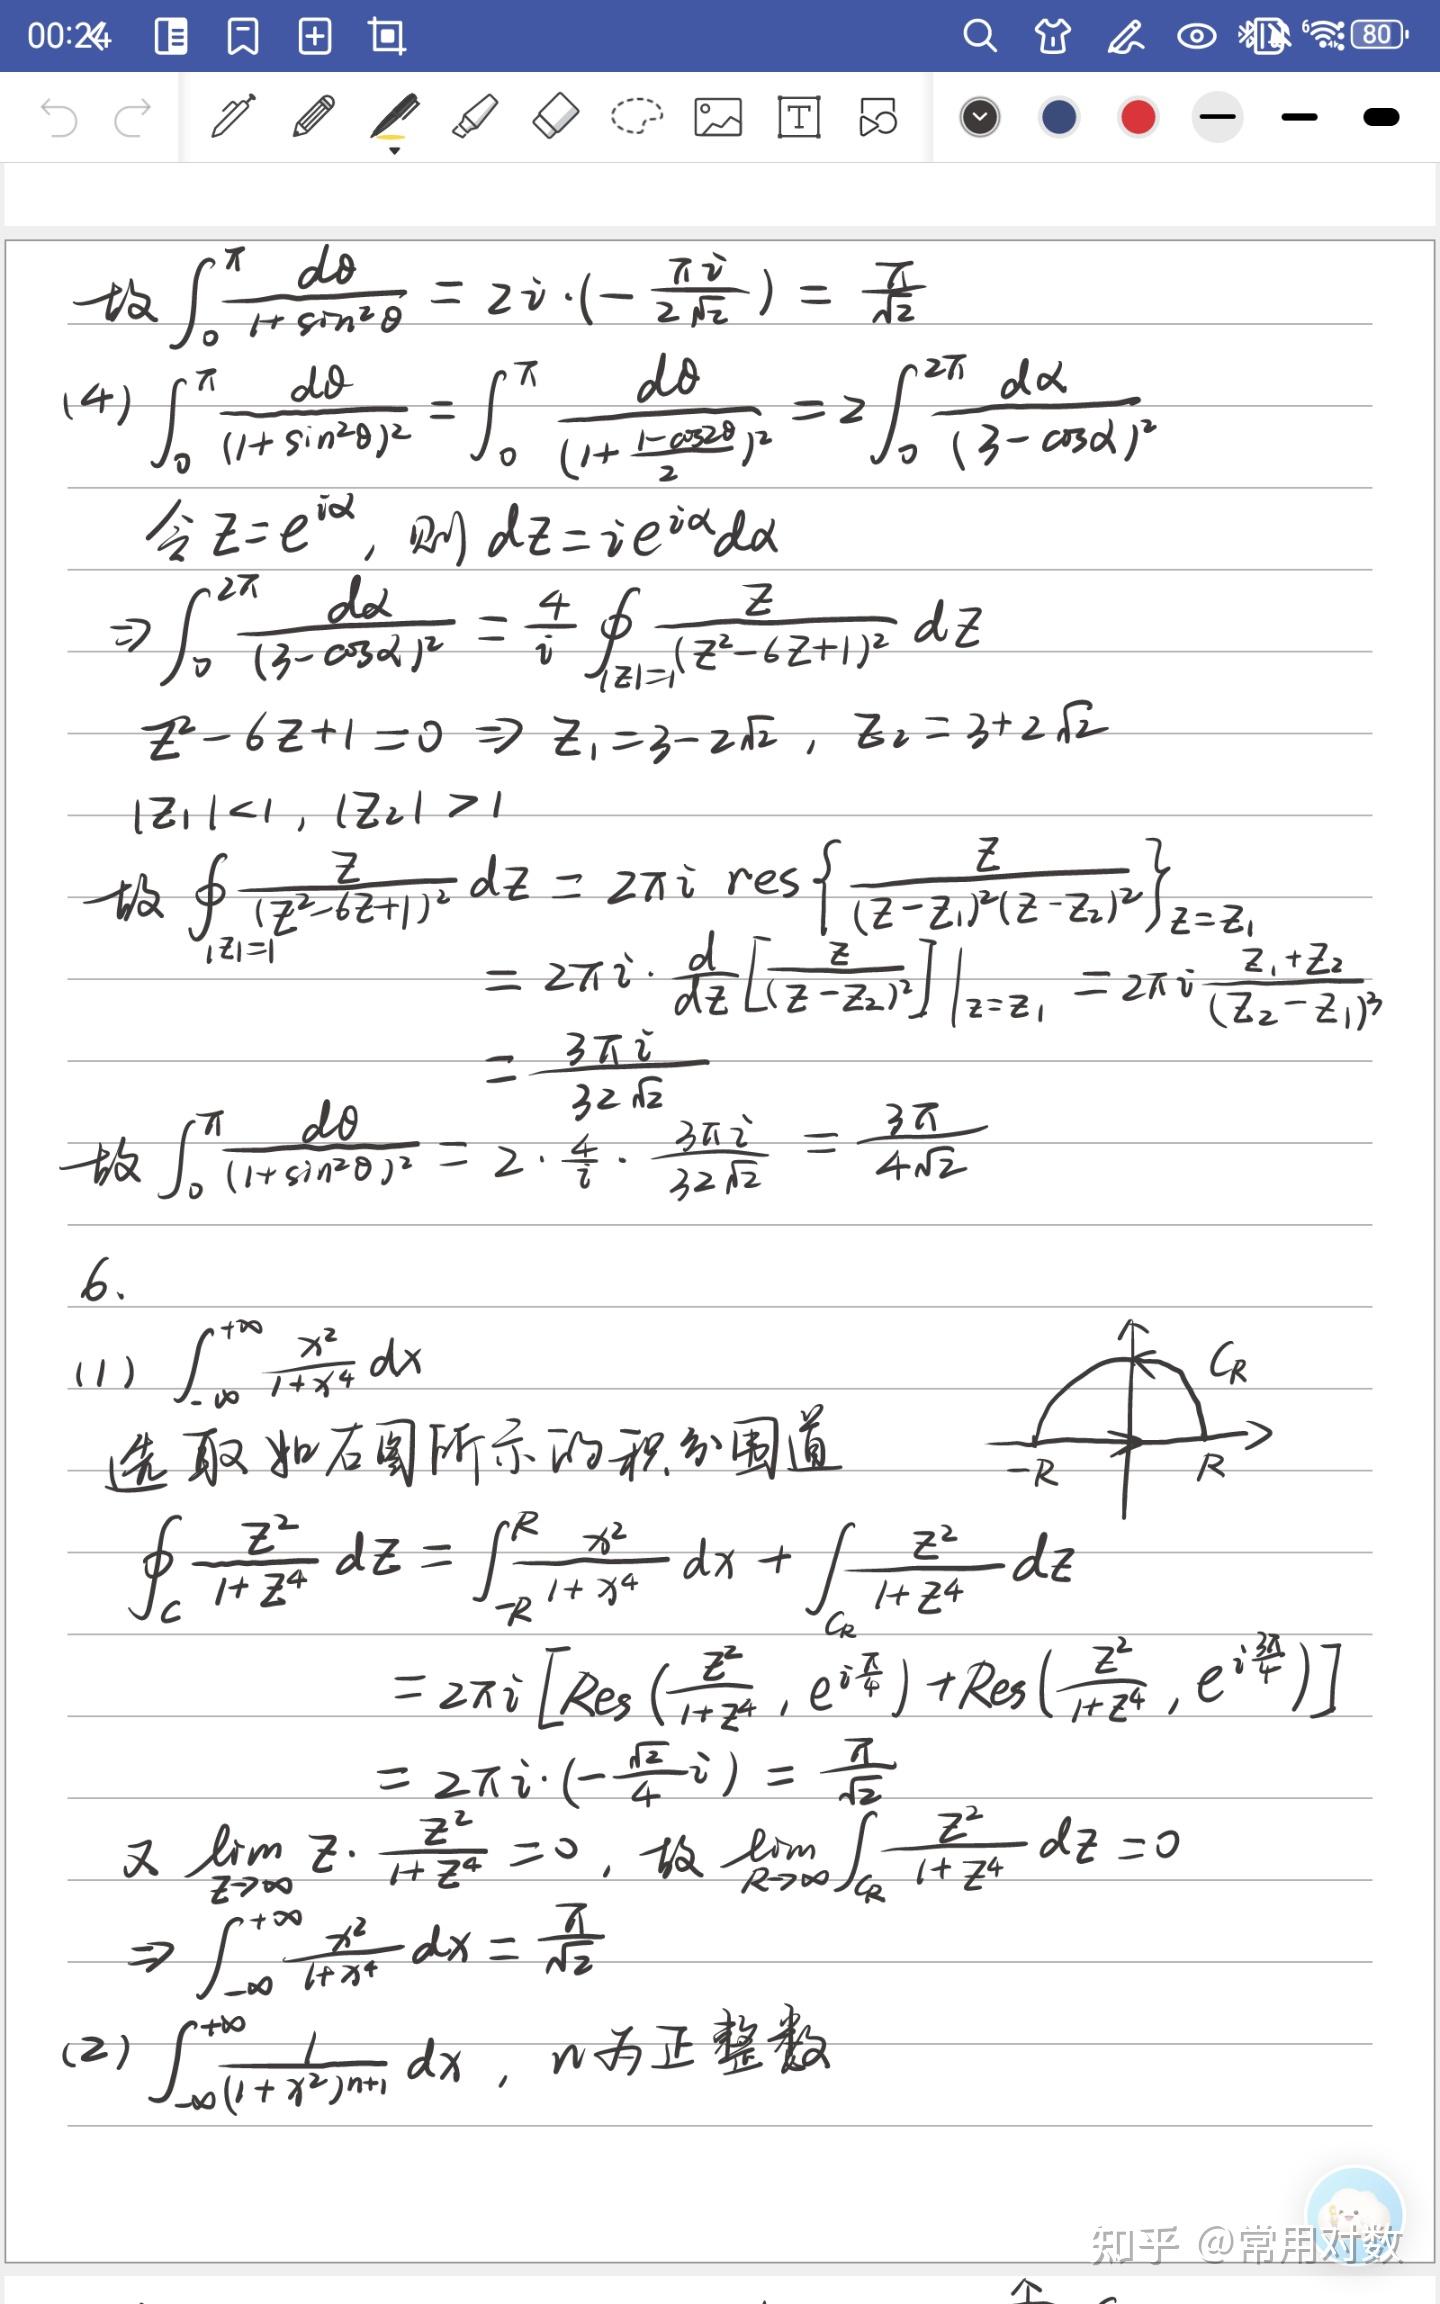 00:24
6
80
故 ∫₀^π dθ/(1+sin²θ) = 2i·(−πi/(2√2)) = π/√2
(4) ∫₀^π dθ/(1+sin²θ)² = ∫₀^π dθ/(1+(1−cos2θ)/2)² = 2∫₀^{2π} dα/(3−cosα)²
令 z=e^{iα}, 则 dz=ie^{iα}dα
⇒ ∫₀^{2π} dα/(3−cosα)² = 4/i ∮_{|z|=1} z/(z²−6z+1)² dz
z²−6z+1=0 ⇒ z₁=3−2√2, z₂=3+2√2
|z₁|<1, |z₂|>1
故 ∮_{|z|=1} z/(z²−6z+1)² dz = 2πi res{z/((z−z₁)²(z−z₂)²)}_{z=z₁}
= 2πi· d/dz[z/(z−z₂)²]|_{z=z₁} = 2πi (z₁+z₂)/(z₂−z₁)³
= 3πi/(32√2)
故 ∫₀^π dθ/(1+sin²θ)² = 2·4/i·3πi/(32√2) = 3π/(4√2)
6.
(1) ∫_{−∞}^{+∞} x²/(1+x⁴) dx
C_R
选取如右图所示的积分围道
−R R
∮_C z²/(1+z⁴) dz = ∫_{−R}^R x²/(1+x⁴) dx + ∫_{C_R} z²/(1+z⁴) dz
= 2πi[Res(z²/(1+z⁴), e^{iπ/4})+Res(z²/(1+z⁴), e^{i3π/4})]
= 2πi·(−√2/4 i) = π/√2
又 lim_{z→∞} z·z²/(1+z⁴) =0, 故 lim_{R→∞} ∫_{C_R} z²/(1+z⁴) dz=0
⇒ ∫_{−∞}^{+∞} x²/(1+x⁴) dx = π/√2
(2) ∫_{−∞}^{+∞} 1/(1+x²)^{n+1} dx, n为正整数
知乎 @常用对数